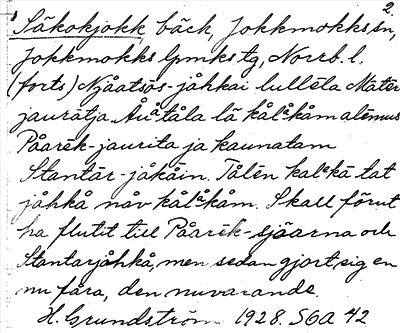 2.
Säkokjokk, bäck, Jokkmokks sn,
Jokkmokks lpmks tg, Norrb. l.
(forts) Njåatsòs-jåhkai lulléla Mátér
jaurátja. Åuatåla lä kålåkåm alémus
Påarēk-jaurita ja kaunatam
Stantár-jåkåin. Tålēn kalkā tat
jåhkå nåv kålåkåm. Skall förut
ha flutit till Påarēk-sjöarna och
Stantarjåhkå, men sedan gjort sig en
ny fåra, den nuvarande.
H. Grundström 1928. SOA 42